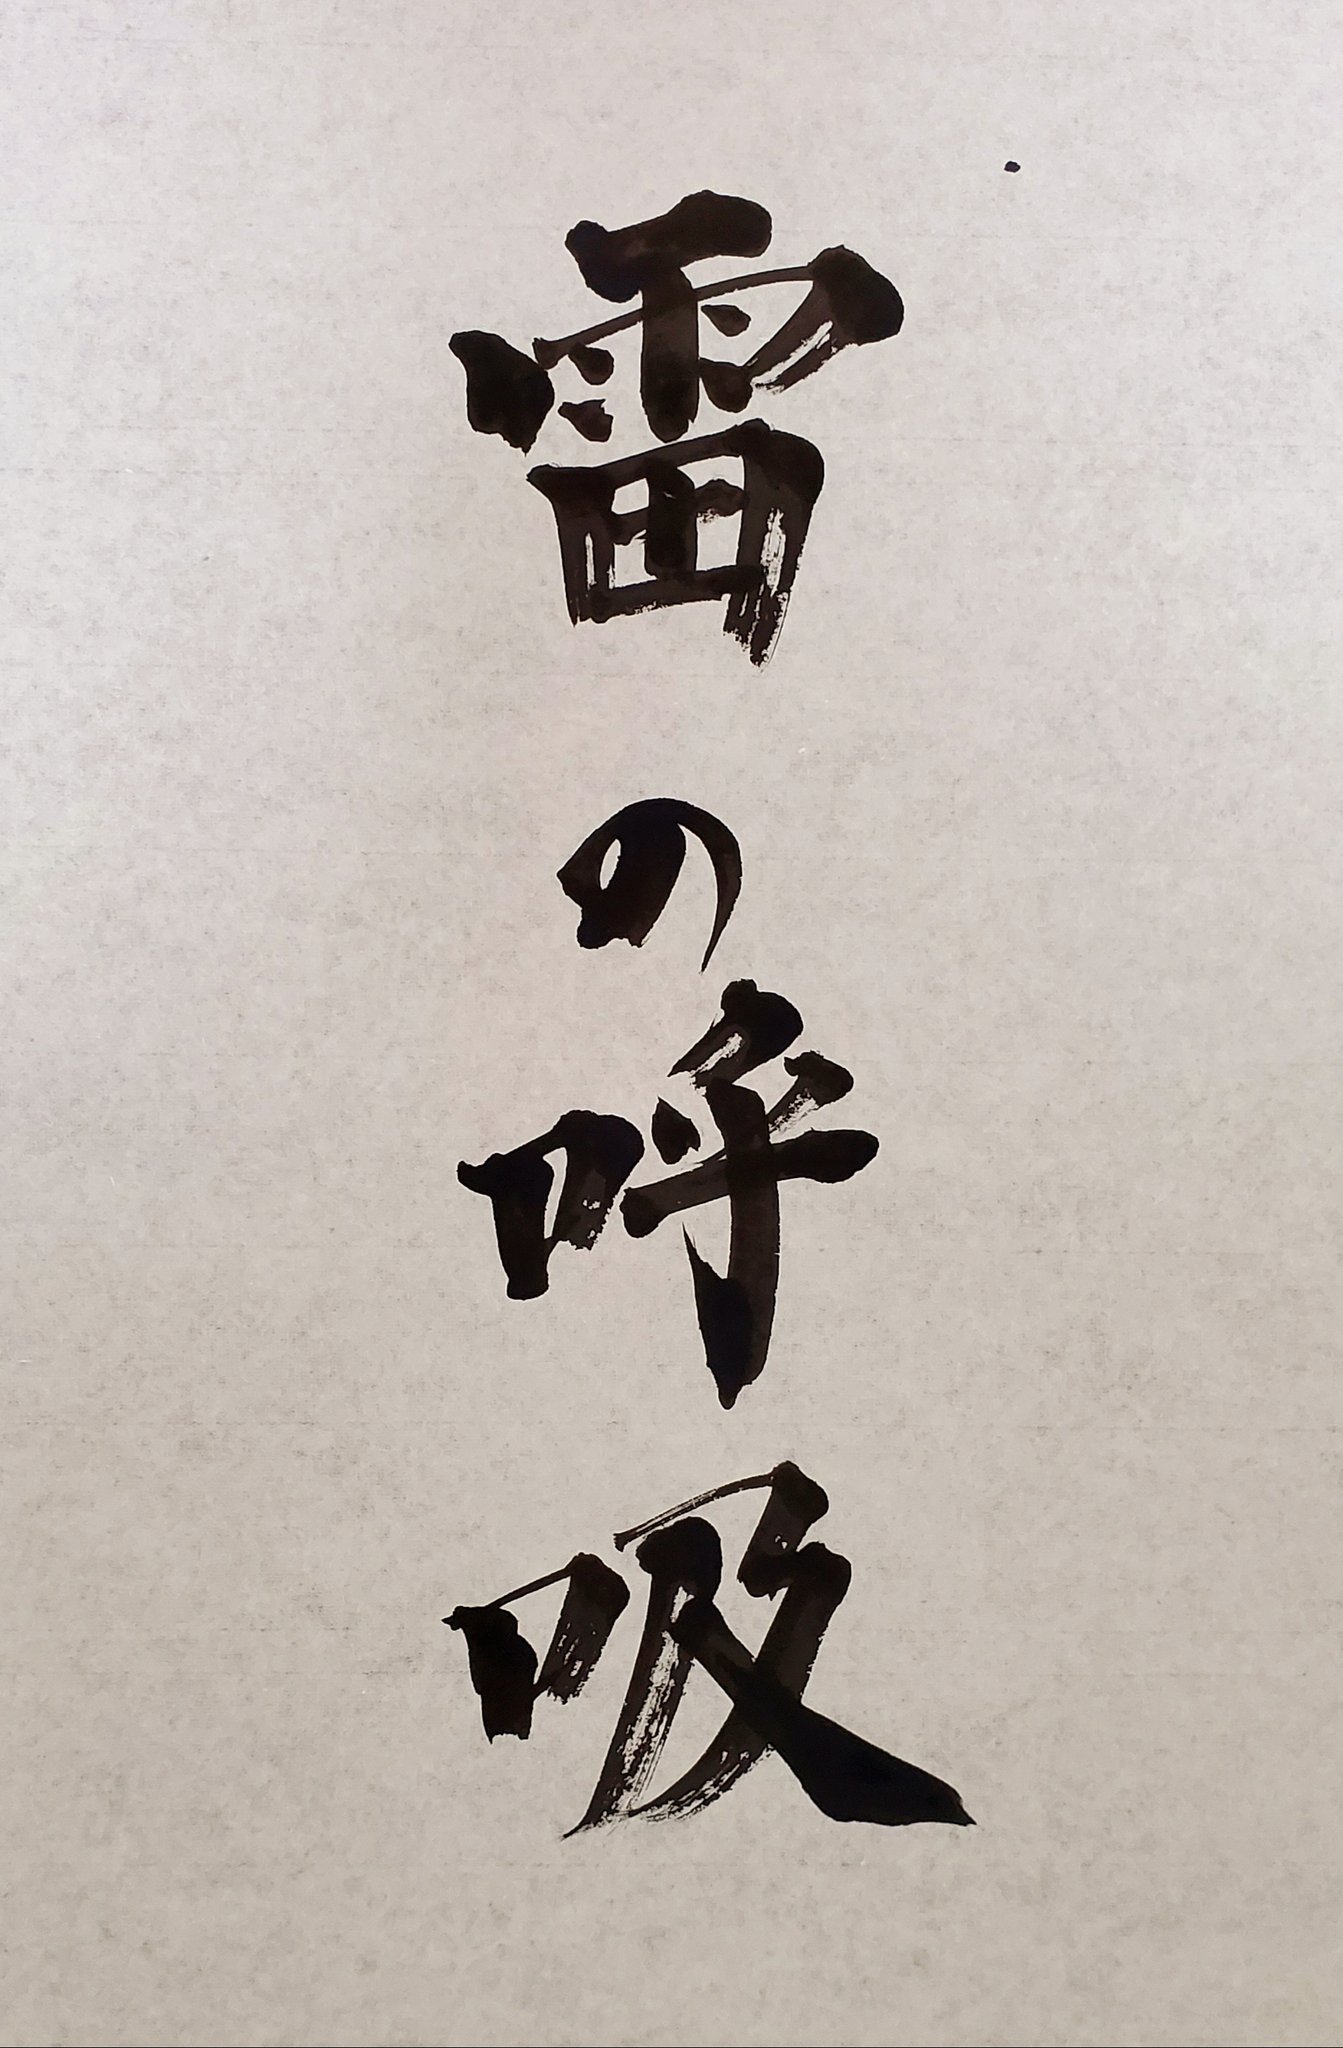 雷の呼吸